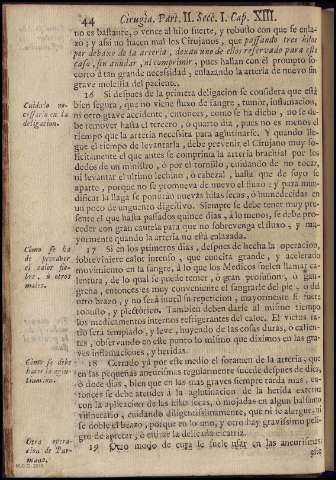 44 Cirugia, Part. II. Secc. I. Cap. XIII.
no es bastante, ò vence al hilo fuerte, y robusto con que se enla-
zo; y assi no hacen mal los Cirujanos, que passando tres hilos
por debaxo de la arteria, dexan uno de ellos reservado para este
caso, sin anudar, ni comprimir, pues hallan con èl prompto so-
corro à tan grande necessidad, enlazando la arteria de nuevo sin
grave molestia del paciente.
Cuidado ne-
cessario en la
deligacion.
16 Si despues de la primera deligacion se considera que està
bien segura, que no viene fluxo de sangre, tumor, inflamacion,
ni otro grave accidente, entonces, como se ha dicho, no se de-
be remover hasta el tercero, ò quarto dia, pues no es menos el
tiempo que la arteria necessita para aglutinarse. Y quando lle-
gue el tiempo de levantarla, debe prevenir el Cirujano muy so-
licitamente el que antes se comprima la arteria brachial por los
dedos de un ministro, ò por el tornillo, cuidando de no tocar,
ni levantar el ultimo lechino, ò cabezal, hasta que de suyo se
aparte, porque no se promueva de nuevo el fluxo: y para mun-
dificar la llaga se pondràn nuevas hilas secas, ò humedecidas en
un poco de unguento digestivo. Siempre se debe tener muy pre-
sente el que hasta passados quince dias, à lo menos, se debe pro-
ceder con gran cautela para que no sobrevenga el fluxo, y ma-
yormente quando la arteria no està enlazada.
Como se ha
de precaber
el calor fie-
bre, u otros
males.
17 Si en los primeros dias, despues de hecha la operacion,
sobreviniere calor intenso, que concita grande, y acelerado
movimiento en la sangre, à lo que los Medicos suelen llamar ca-
lentura, de lo qual se puede temer, ò gran profusion, ò gan-
grena, entonces es muy conveniente el sangrarle del pie, ò del
otro brazo, y no serà inutil su repeticion, mayormente si fuere
robusto, y plectorico. Tambien deben darse al mismo tiempo
los medicamentos internos refrigerantes del calor. El victus ra-
tio serà templado, y leve, huyendo de las cosas duras, ò calien-
tes, observando en este punto lo mismo que diximos en las gra-
ves inflamaciones, y heridas.
Còmo se debe
hacer la aglu-
tinacion.
18 Cerrado yà por este medio el foramen de la arteria, que
en las pequeñas aneurismas regularmente sucede despues de diez,
ò doce dias, bien que en las mas graves siempre tarda mas, en-
tonces se debe atender à la aglutinacion de la herida externa
con la aplicacion de las hilas secas, ò mojadas en algun balsamo
vulnerario, cuidando diligentissimamente, que ni se alargue, ni
se doble el brazo, porque en lo uno, y otro hay gravissimo peli-
gro de apretar, ò estirar la delicada cicatriz.
Otra opera-
cion de Pur-
mano.
19 Otro modo de cura se suele usar en las aneurismas
que